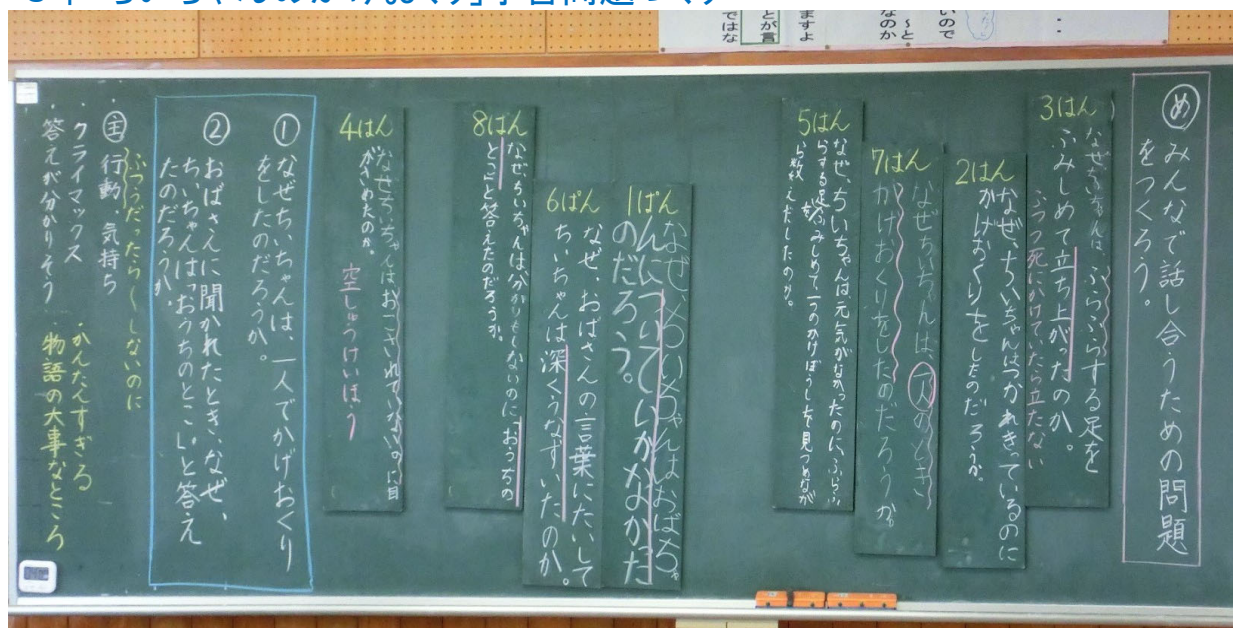 め みんなで話し合うための問題
をつくろう。
3はん
なぜちいちゃんは、ふらふらする足を
ふみしめて立ち上がったのか。
ふつう死にかけていたら立たない
2はん
なぜ、ちいちゃんはつかれきっているのに
かげおくりをしたのだろうか。
7はん
なぜちいちゃんは、一人のときに
かげおくりをしたのだろうか。
5はん
なぜ、ちいちゃんは元気がなかったのに、ふらふ
らする足をふみしめて、一つのかげぼうしを見つめなが
ら数えだしたのか。
1ぱん
なぜ、ちいちゃんはおばちゃ
んについていかなかった
のだろう。
6ぱん
なぜ、おばさんの言葉にたいして
ちいちゃんは深くうなずいたのか。
8はん
なぜ、ちいちゃんは、分かりもしないのに、「おうちの
とこ」と答えたのだろうか。
4はん
なぜちいちゃんはおこされていないのに目
がさめたのか。
空しゅうけいほう
① なぜちいちゃんは、一人でかげおくり
をしたのだろうか。
② おばさんに聞かれたとき、なぜ、
ちいちゃんは「おうちのとこ」と答え
たのだろうか。
ふつうだったら〜しないのに
主 行動・気持ち
・クライマックス
・答えが分かりそう
・かんたんすぎる
物語の大事なところ